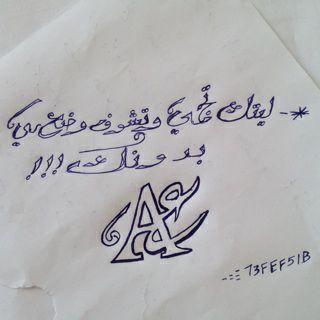 *- ليتك تجي وتشوف وضعي
بدونك !!!
A
73FEF51B